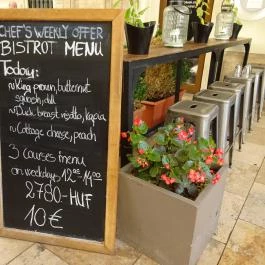 CHEF'S WEEKLY OFFER
BISTROT MENU
Today:
King prawn, butternut
squash, dill
Duck breast, risotto, kapia
Cottage cheese, peach
3 courses menu
on weekdays 1200-14.00
2780-HUF
10€